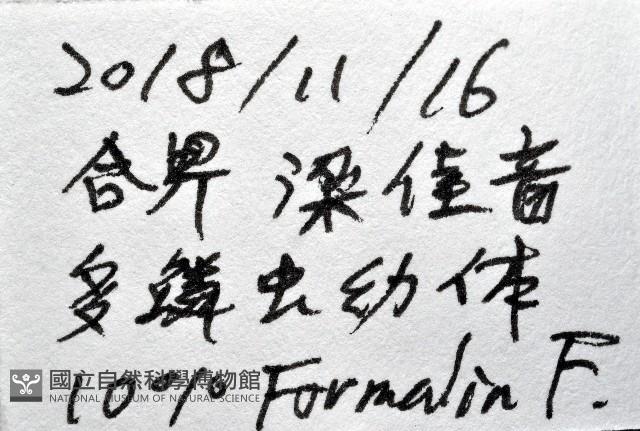 2018/11/16
合界 梁佳音
多鱗虫幼体
10% Formalin F.
國立自然科學博物館
NATIONAL MUSEUM OF NATURAL SCIENCE